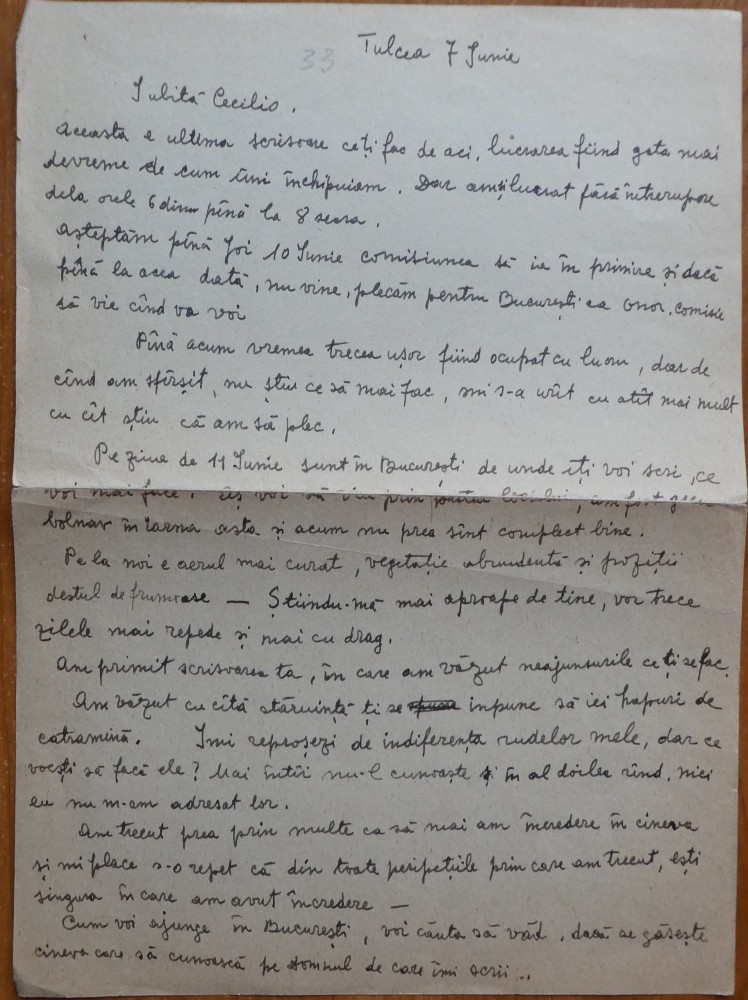 33
Tulcea 7 Iunie
Iubită Cecilio,
Aceasta e ultima scrisoare ce ți fac de aci, lucrarea fiind gata mai
devreme de cum îmi închipuiam. Dar am și lucrat fără întrerupere
dela orele 6 dim pînă la 8 seara.
Așteptăm pînă Joi 10 Iunie comisiunea să ia în primire și dacă
pînă la acea dată, nu vine, plecăm pentru București ca onor. comisie
să vie cînd va voi
Pînă acum vremea trecea ușor fiind ocupat cu lucru, dar de
cînd am sfîrșit, nu știu ce să mai fac, mi s-a urît cu atît mai mult
cu cît știu că am să plec.
Pe ziua de 11 Iunie sunt în București de unde îți voi scri, ce
voi mai face. voi să prin am fost
bolnav în iarna asta și acum nu prea sînt complect bine.
Pe la noi e aerul mai curat, vegetație abundentă și poziții
destul de frumoase — Știindu-mă mai aproape de tine, vor trece
zilele mai repede și mai cu drag.
Am primit scrisoarea ta, în care am văzut neajunsurile ce ți se fac.
Am văzut cu cîtă stăruință ți se inpune să iei hapuri de
catramină. Imi reproșezi de indiferența rudelor mele, dar ce
voești să facă ele? Mai întîi nu-l cunoaște și în al doilea rînd, nici
eu nu m-am adresat lor.
Am trecut prea prin multe ca să mai am încredere în cineva
și mi place s-o repet că din toate peripețiile prin care am trecut, ești
singura în care am avut încredere —
Cum voi ajunge în București, voi căuta să văd, dacă se găsește
cineva care să cunoască pe domnul de care îmi scrii..